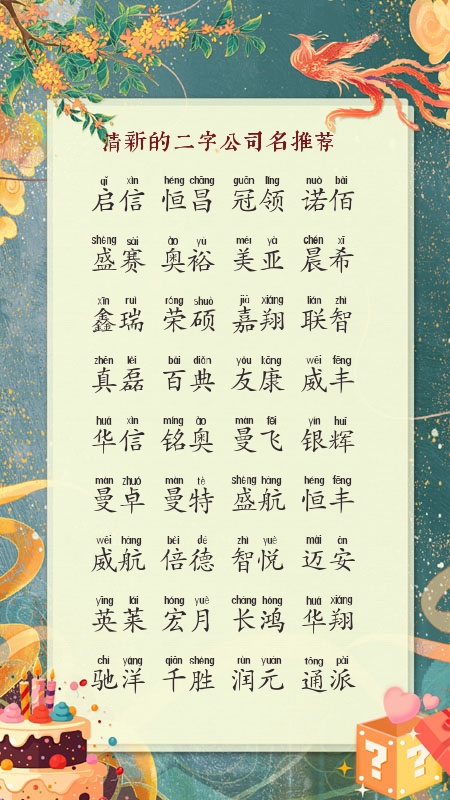 清新的二字公司名推荐
qǐ xìn héng chāng guān lǐng nuò bǎi
启信 恒昌 冠领 诺佰
shèng sài ào yù měi yà chén xī
盛赛 奥裕 美亚 晨希
xīn ruì róng shuò jiā xiáng lián zhì
鑫瑞 荣硕 嘉翔 联智
zhēn lěi bǎi diǎn yǒu kāng wēi fēng
真磊 百典 友康 威丰
huá xìn míng ào màn fēi yín huī
华信 铭奥 曼飞 银辉
màn zhuó màn tè shèng háng héng fēng
曼卓 曼特 盛航 恒丰
wēi háng bèi dé zhì yuè mài ān
威航 倍德 智悦 迈安
yīng lái hóng yuè cháng hóng huá xiáng
英莱 宏月 长鸿 华翔
chí yáng qiān shèng rùn yuán tōng pài
驰洋 千胜 润元 通派
? ?